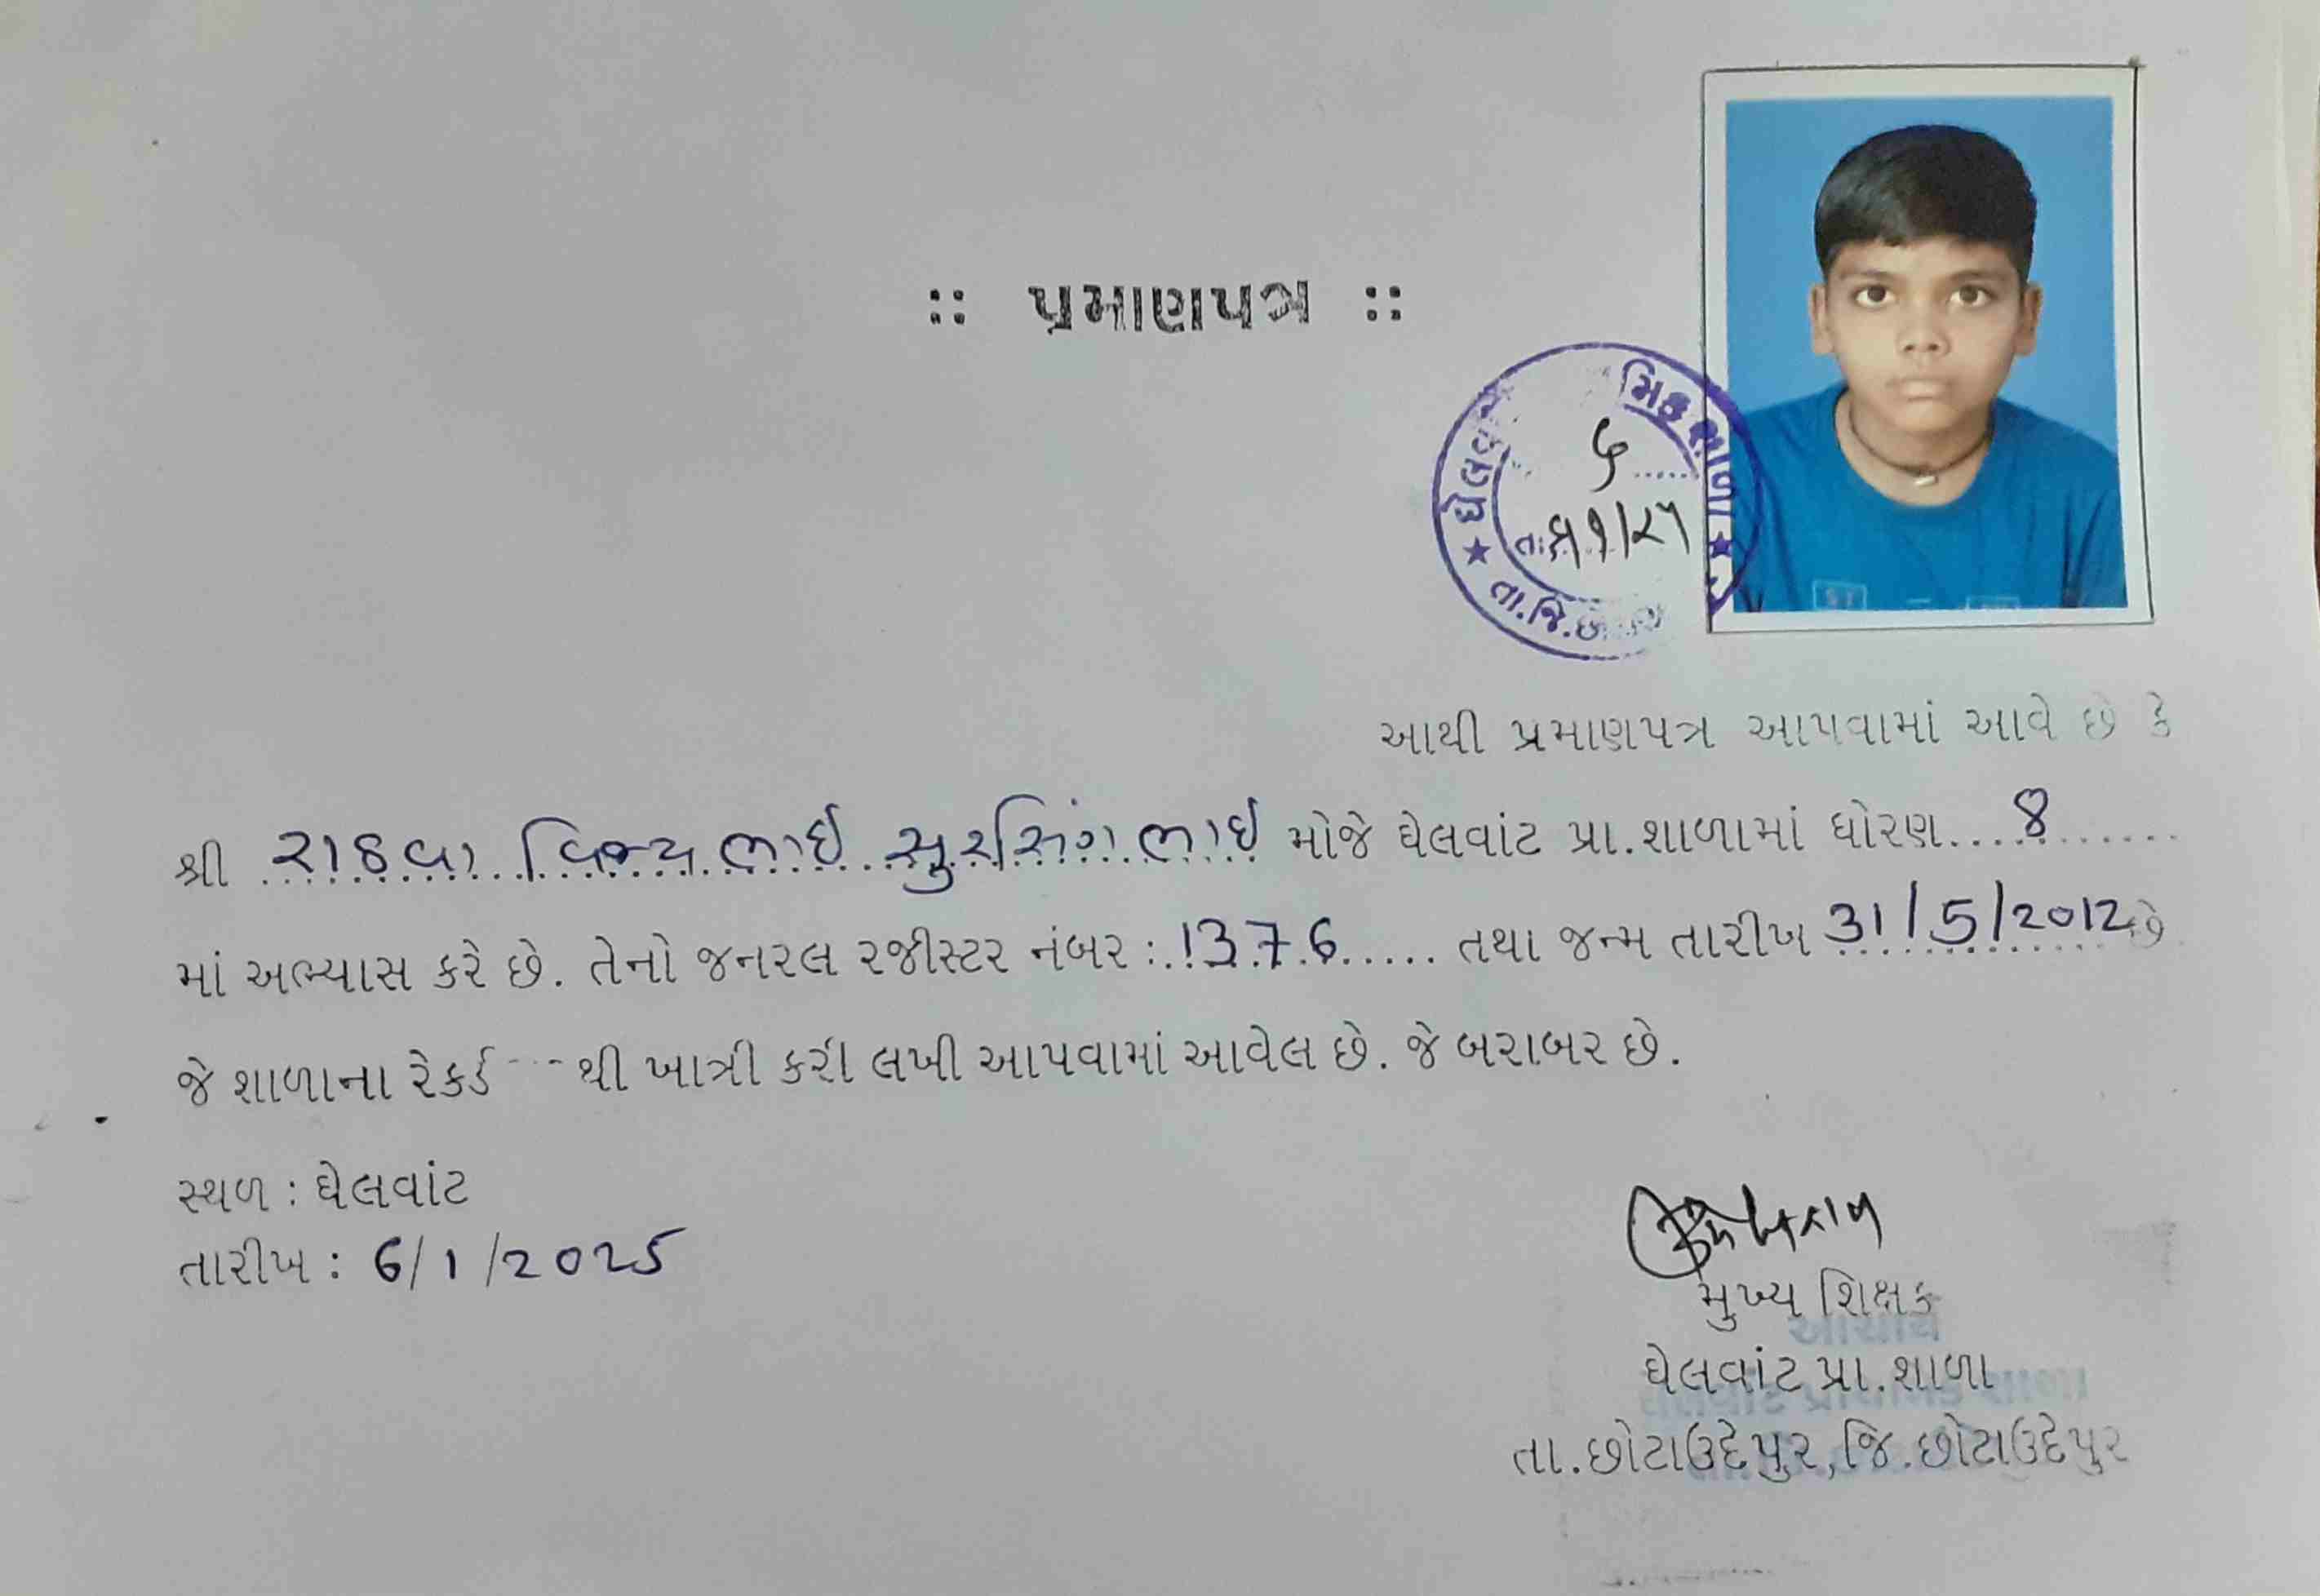 :: પ્રમાણપત્ર ::
ઘેલવ મિક શાળા
તા.જિ.છો
૬
તા: ૬ ૧/૨૫
આથી પ્રમાણપત્ર આપવામાં આવે છે કે
શ્રી રાઠવા વિજયભાઈ સુરસિંગભાઈ મોજે ઘેલવાંટ પ્રા.શાળામાં ધોરણ....8......
માં અભ્યાસ કરે છે. તેનો જનરલ રજીસ્ટર નંબર :.1376..... તથા જન્મ તારીખ 31/5/2012 છે
જે શાળાના રેકર્ડ ---થી ખાત્રી કરી લખી આપવામાં આવેલ છે. જે બરાબર છે.
સ્થળ : ઘેલવાંટ
તારીખ : 6/1/2025
મુખ્ય શિક્ષક
આચાર્ય
ઘેલવાંટ પ્રા.શાળા
તા.છોટાઉદેપુર,જિ.છોટાઉદેપુર